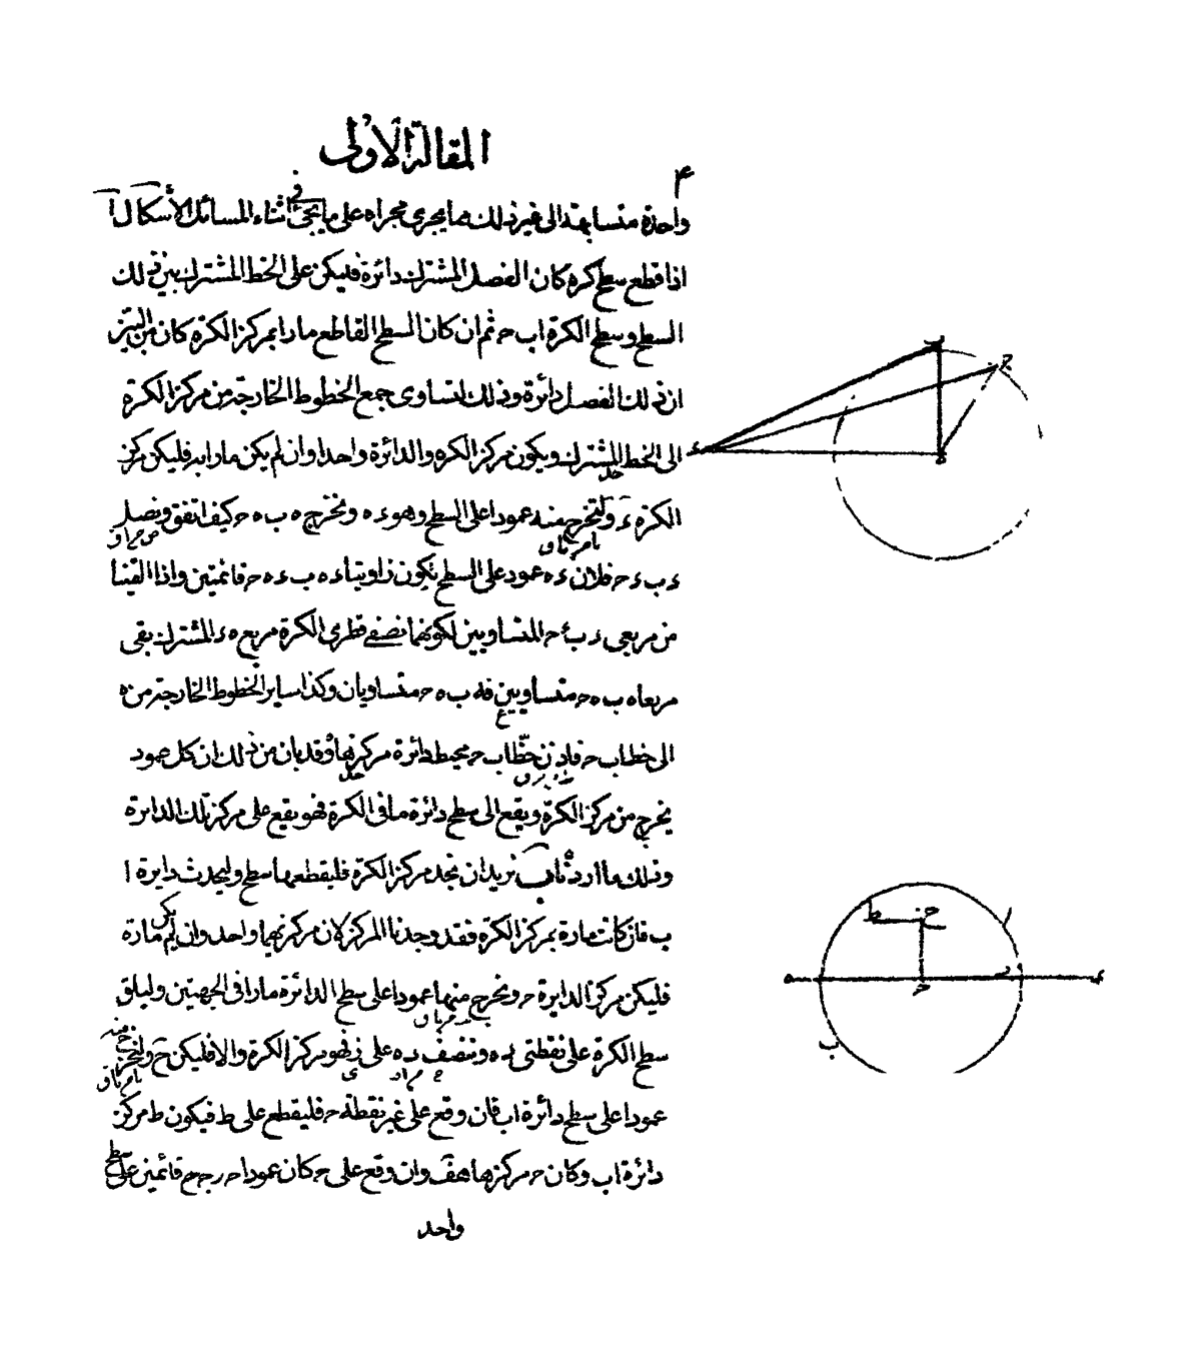 المقالة الأولى
٤
واحدة متسابقة الى غير ذلك مما يجرى مجراه على ما يجئ في اثناء المسائل الأشكال آ
اذا قطع سطح كرة كان الفصل المشترك دائرة فليكن على الخط المشترك بين ذلك
السطح وسطح الكرة اب ح ثم ان كان السطح القاطع مارا بمركز الكرة كان من البين
ان ذلك الفصل دائرة وذلك لتساوى جمع الخطوط الخارجة من مركز الكرة
الى الخط المشترك ويكون مركز الكره والدائرة واحدا وان لم يكن مارا به فليكن مركز
الكرة ء ولنخرج منه عمودا على السطح وهو ء ه ونخرج ه ب ه ح كيف اتفق ونصل
ء ب ء ح فلان ء ه عمود على السطح يكون زاويتا ء ه ب ء ه ح قائمتين واذا القينا
من مربعى ء ب ء ح المتساويين لكونهما نصفى قطرى الكرة مربع ه ء المشترك بقى
مربعا ه ب ه ح متساويين فه ب ه ح متساويان وكذا ساير الخطوط الخارجة من ه
الى خط اب ح فاذن خط اب ح محيط دائرة مركزها ه وقد بان من ذلك ان كل عمود
يخرج من مركز الكرة ويقع الى سطح دائرة ما فى الكرة فهو يقع على مركز تلك الدايرة
وذلك ما اردناه ب نريد ان نجد مركز الكرة فليقطعها سطح وليحدث دايرة ا
ب فان كانت مارة بمركز الكرة فقد وجدنا المركز لان مركزيهما واحد وان لم يكن مارة
فليكن مركز الدايرة ح ونخرج منها عمودا على سطح الدائرة مارا فى الجهتين وليلق
سطح الكرة على نقطتى ء ه وننصف ء ه على ز فهو مركز الكرة والا فليكن ح ولنخرج منه
عمودا على سطح دائرة اب فان وقع على غير نقطة ح فليقطع على ط فيكون ط مركز
دائرة اب وكان ح مركزها هف وان وقع على ح كان عمودا ح ر ح ح قائمين على سطح
واحد
ب
ح
ء
ه
ح
ط
ا
ه
ر
ء
ح
ب